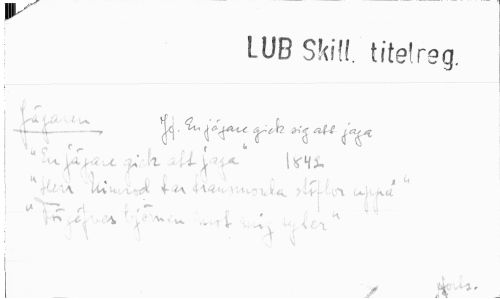 LUB Skill. titelreg.
Jägaren
Jf. En jägare gick sig att jaga
"En jägare gick att jaga" 1842
"Herr Nimrod tar transmorka stöflor uppå"
björnen mot mig
forts.